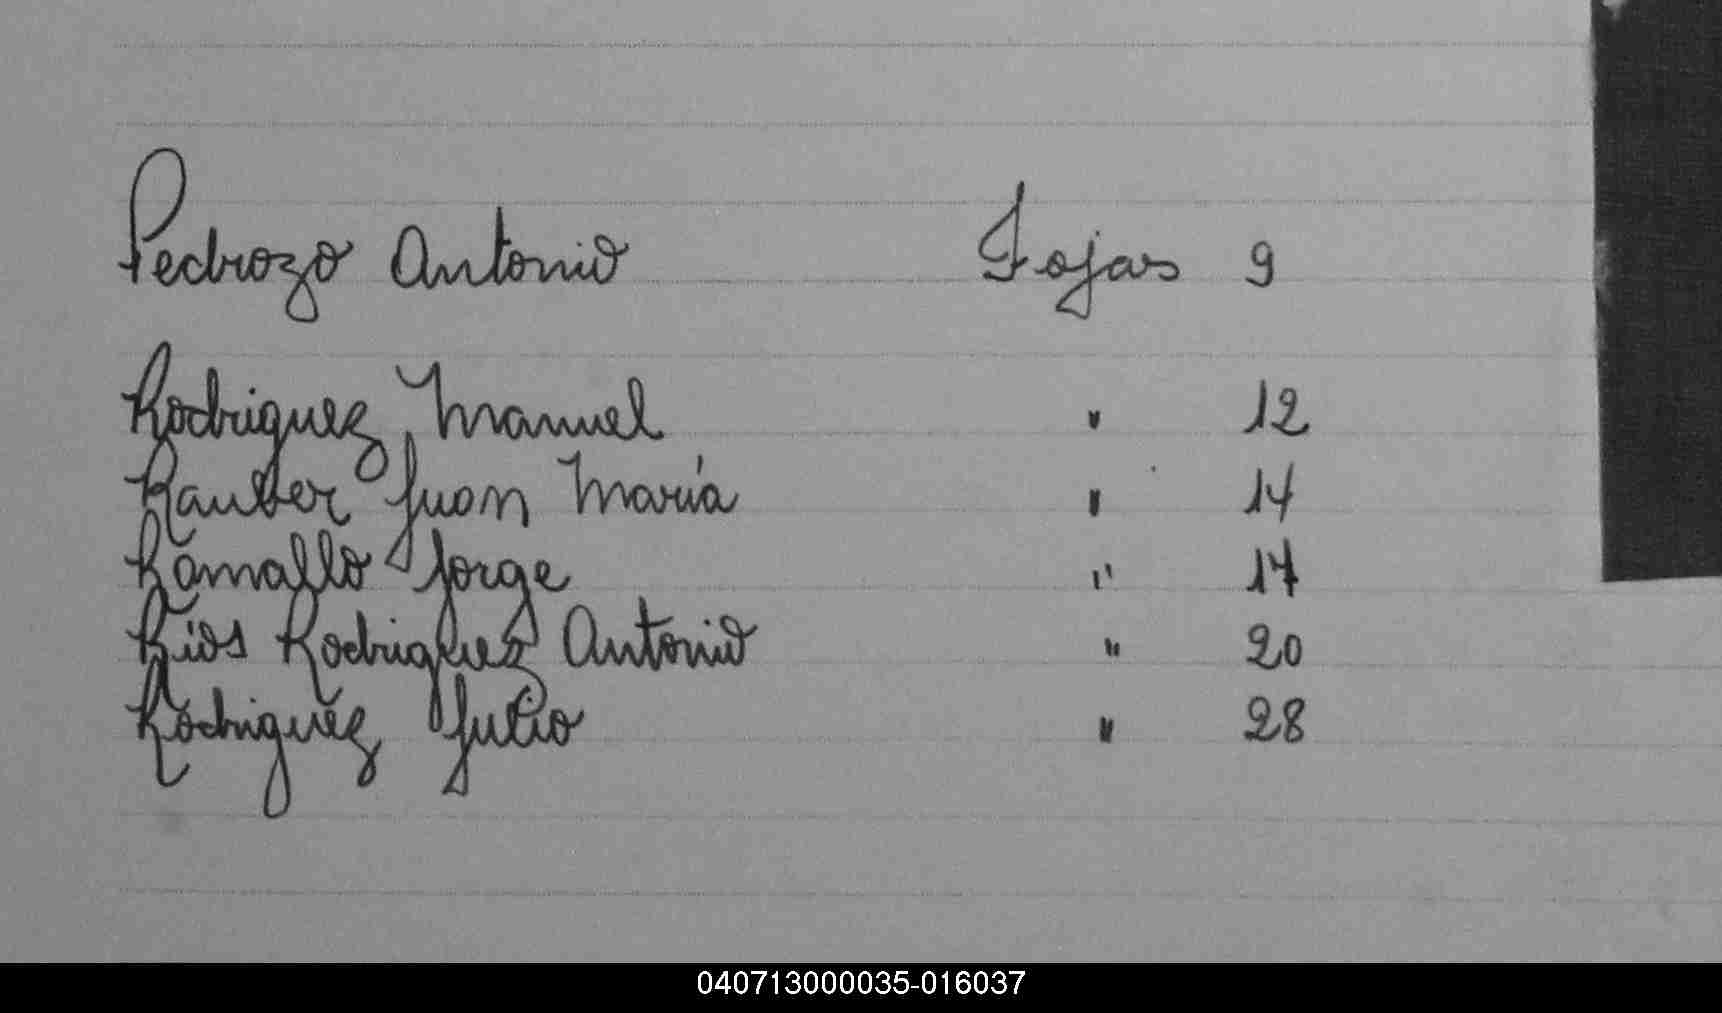 Pedrozo Antonio Fojas 9
Rodriguez Manuel " 12
Rauber Juan María " 14
Ramallo Jorge " 17
Ríos Rodriguez Antonio " 20
Rodriguez Julio " 28
040713000035-016037